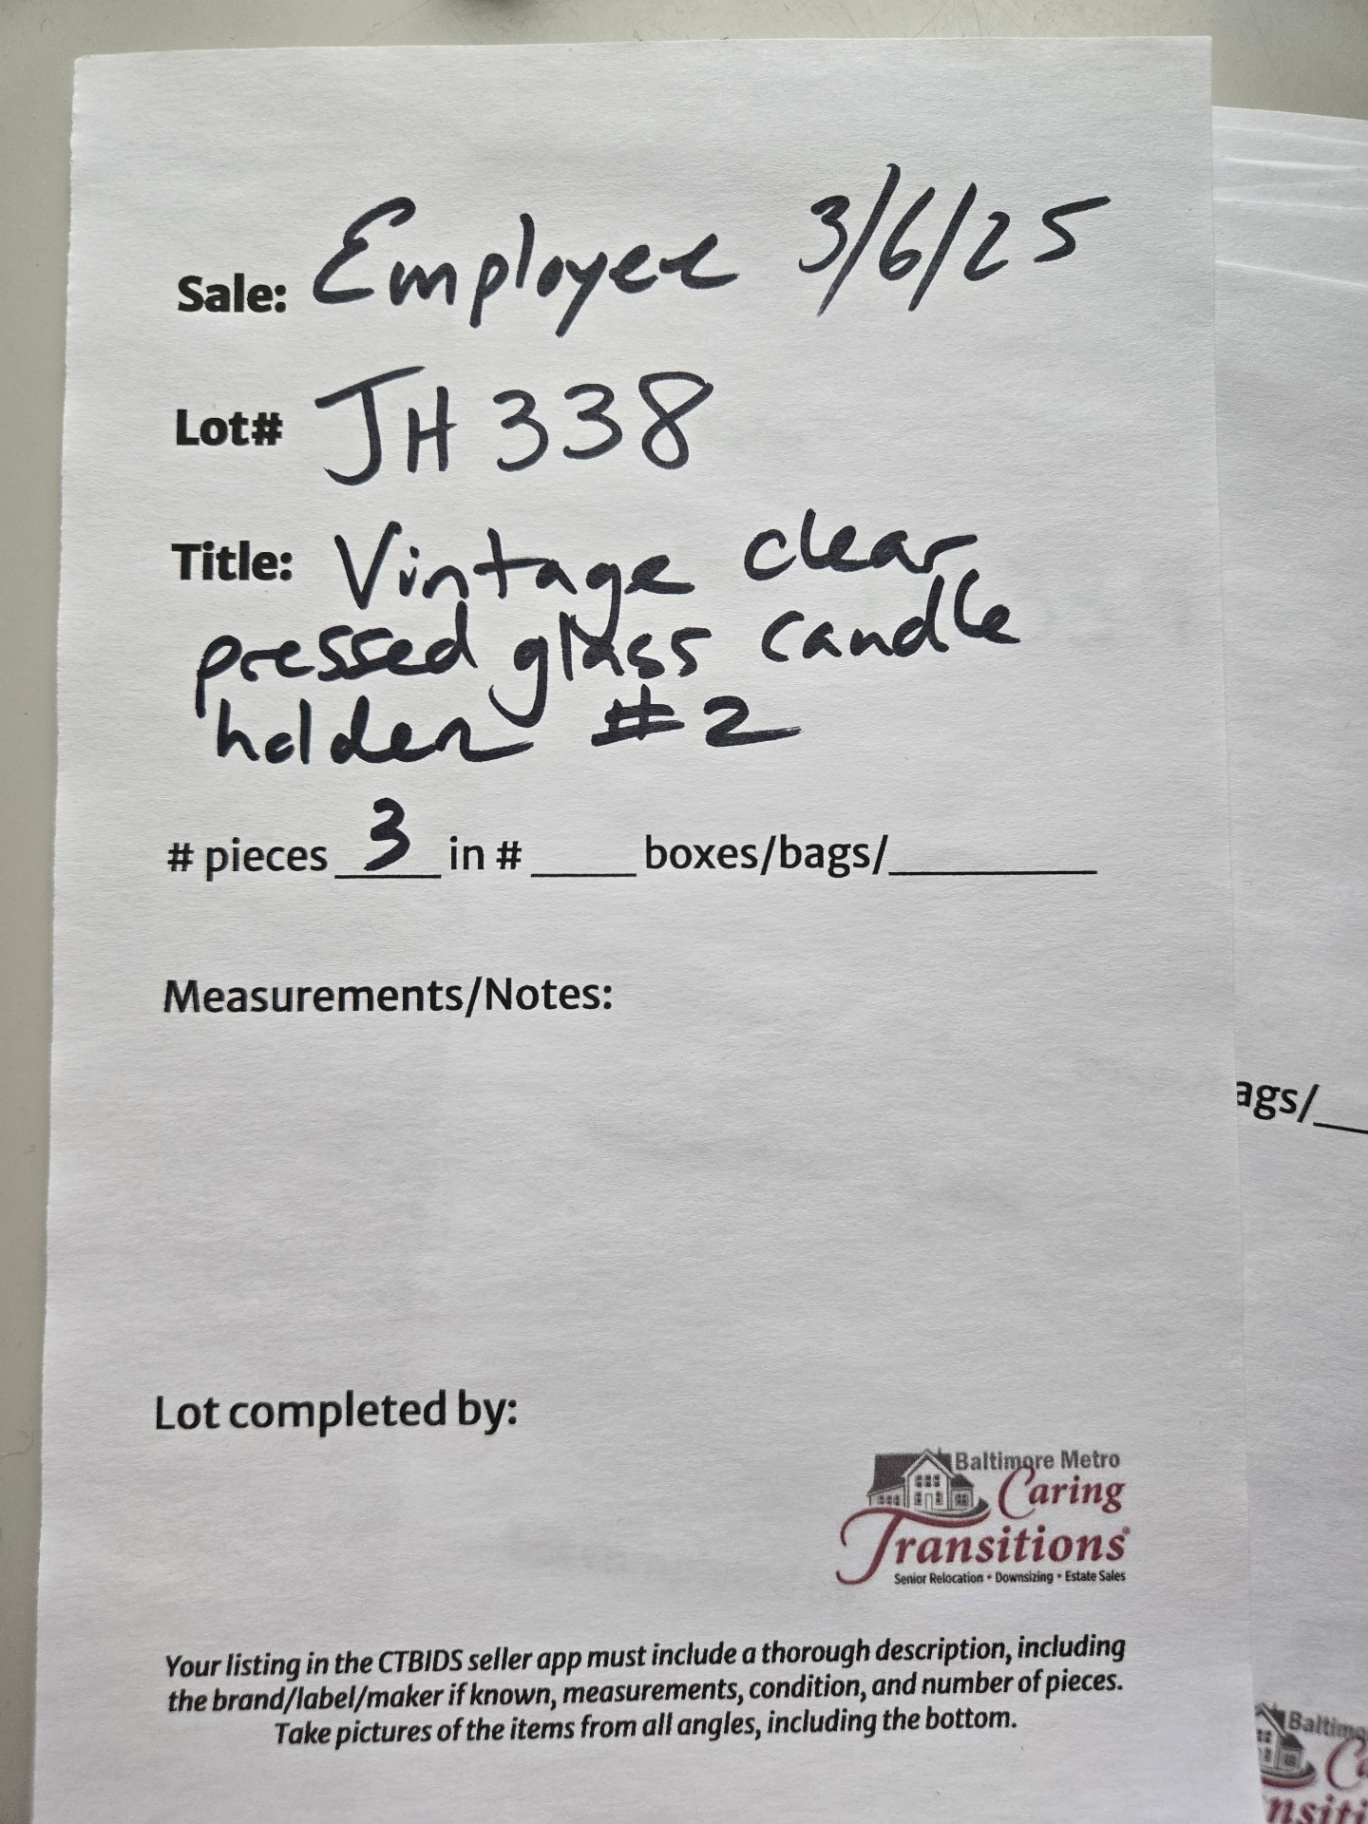 Sale: Employee 3/6/25
Lot# JH 338
Title: Vintage clear
pressed glass candle
holder #2
# pieces 3 in # ____ boxes/bags/________
Measurements/Notes:
ags/__
Lot completed by:
Baltimore Metro
Caring
Transitions®
Senior Relocation • Downsizing • Estate Sales
Your listing in the CTBIDS seller app must include a thorough description, including
the brand/label/maker if known, measurements, condition, and number of pieces.
Take pictures of the items from all angles, including the bottom.
Baltimo
Ca
nsiti